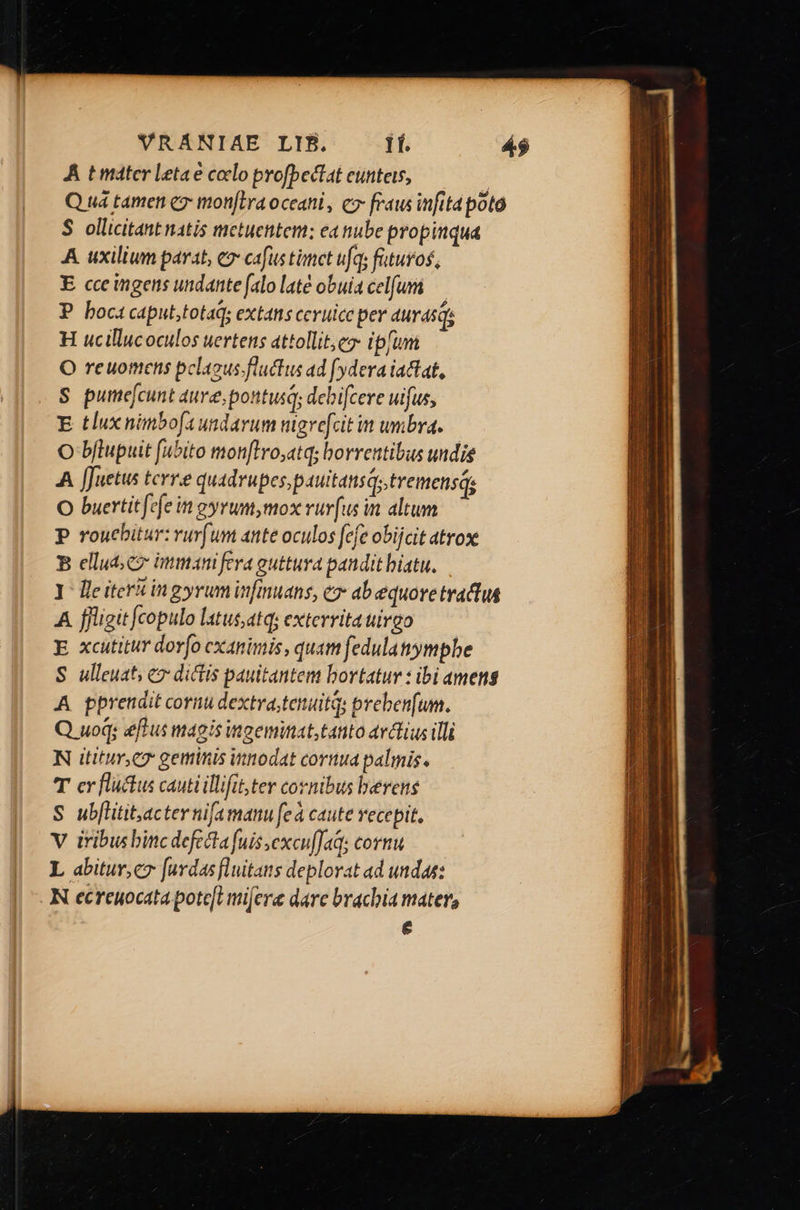 VRANIAE LIB. II. 49
A t mater leta è cœlo proſpectat eunteis,
Q uã tamen & monſtra oceani, & fraus inſita põto
S ollicitant natis metuentem; ea nube propinqua
A uxilium parat, & caſus timet uſq; futuros,
E cce ingens undante ſalo latè obuia celſum
P hoca caput, totaq; extans ceruice per aurasq;
H uc illuc oculos uertens attollit, & ipſum
O reuomens pelagus fluctus ad ſydera iactat.
S pumeſcunt auræ, pontusq; dehiſcere uiſus,
E t lux nimboſa undarum nigreſcit in umbra.
O bſtupuit ſubito monſtro, atq; horrentibus undis
A ſſuetus terræ quadrupes, pauitansq;, tremensq;
O buertit ſeſe in gyrum, mox rurſus in altum
P rouehitur: rurſum ante oculos ſeſe obijcit atrox
B ellua, & immani fera guttura pandit hiatu.
I lle iterũ in gyrum inſinuans, & ab æquore tractus
A ffligit ſcopulo latus, atq; exterrita uirgo
E xcutitur dorſo exanimis, quam ſedula nymphe
S ulleuat, & dictis pauitantem hortatur: ibi amens
A pprendit cornu dextra, tenuitq; prehenſum.
Q uoq; æſtus magis ingeminat, tanto arctius illi
N ititur, & geminis innodat cornua palmis.
T er fluctus cauti illiſit, ter cornibus hærens
S ubſtitit, ac ter niſa manu ſeà caute recepit.
V iribus hinc defecta ſuis, excuſſaq; cornu
L abitur, & ſurdas fluitans deplorat ad undas:
N ec reuocata poteſt miſeræ dare brachia mater,
e